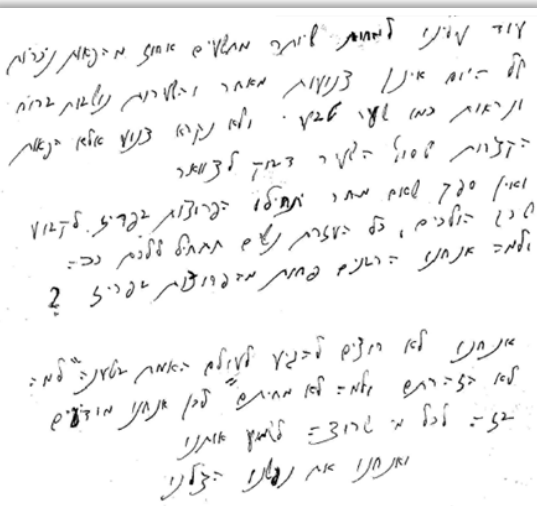 עוד עלינו למחות שיותר מתשעים אחוז מהפאות ניכרות
כל היום אינן צנועות מאחר והשערות נושבות ברוח
ונראות כמו שער טבעי. ולא נקרא צנוע אלא פאות
הקצרות שסוף השיער דבוק לצוואר
ואין ספק שאם מחר יתחילו הפרוצות בפריז לקבוע
שכך הולכים, כל העזרת נשים תתחיל ללכת ככה
ולמה אנחנו הרבנים פחות מהפרוצות בפריז?
אנחנו לא רוצים להגיע לעולם האמת בטענה "למה
לא הזהרתם ולמה לא מחיתם" לכן אנחנו מודיעים
בזה לכל מי שרוצה לשמוע אותנו
ואנחנו את נפשנו הצלנו